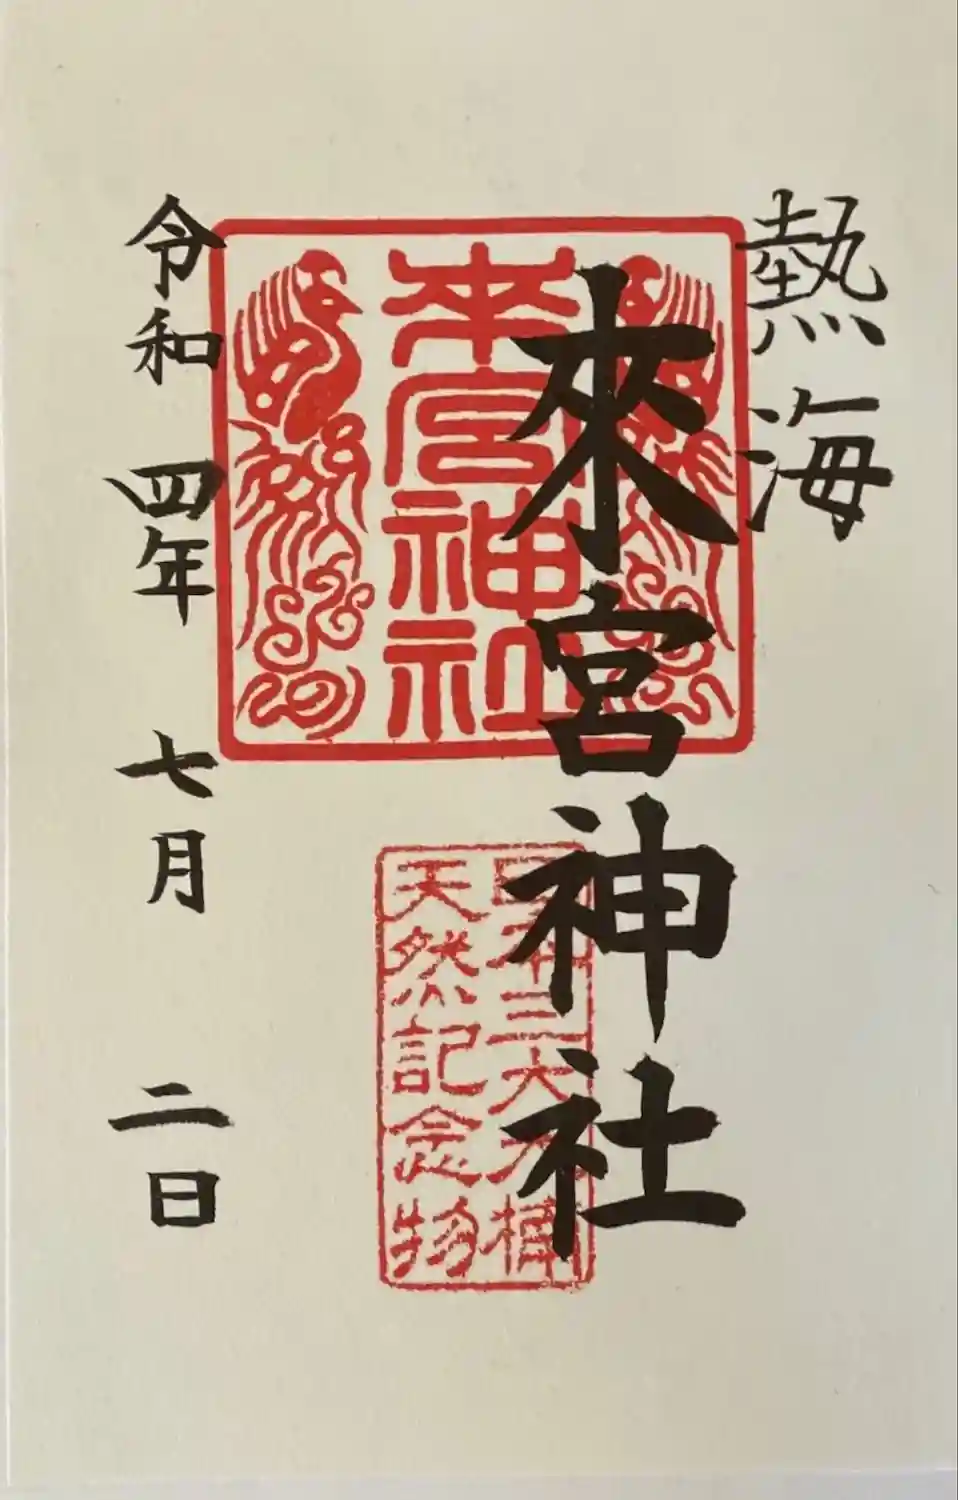 熱海
來宮神社
來宮神社
日本三大大楠
天然記念物
令和四年七月二日